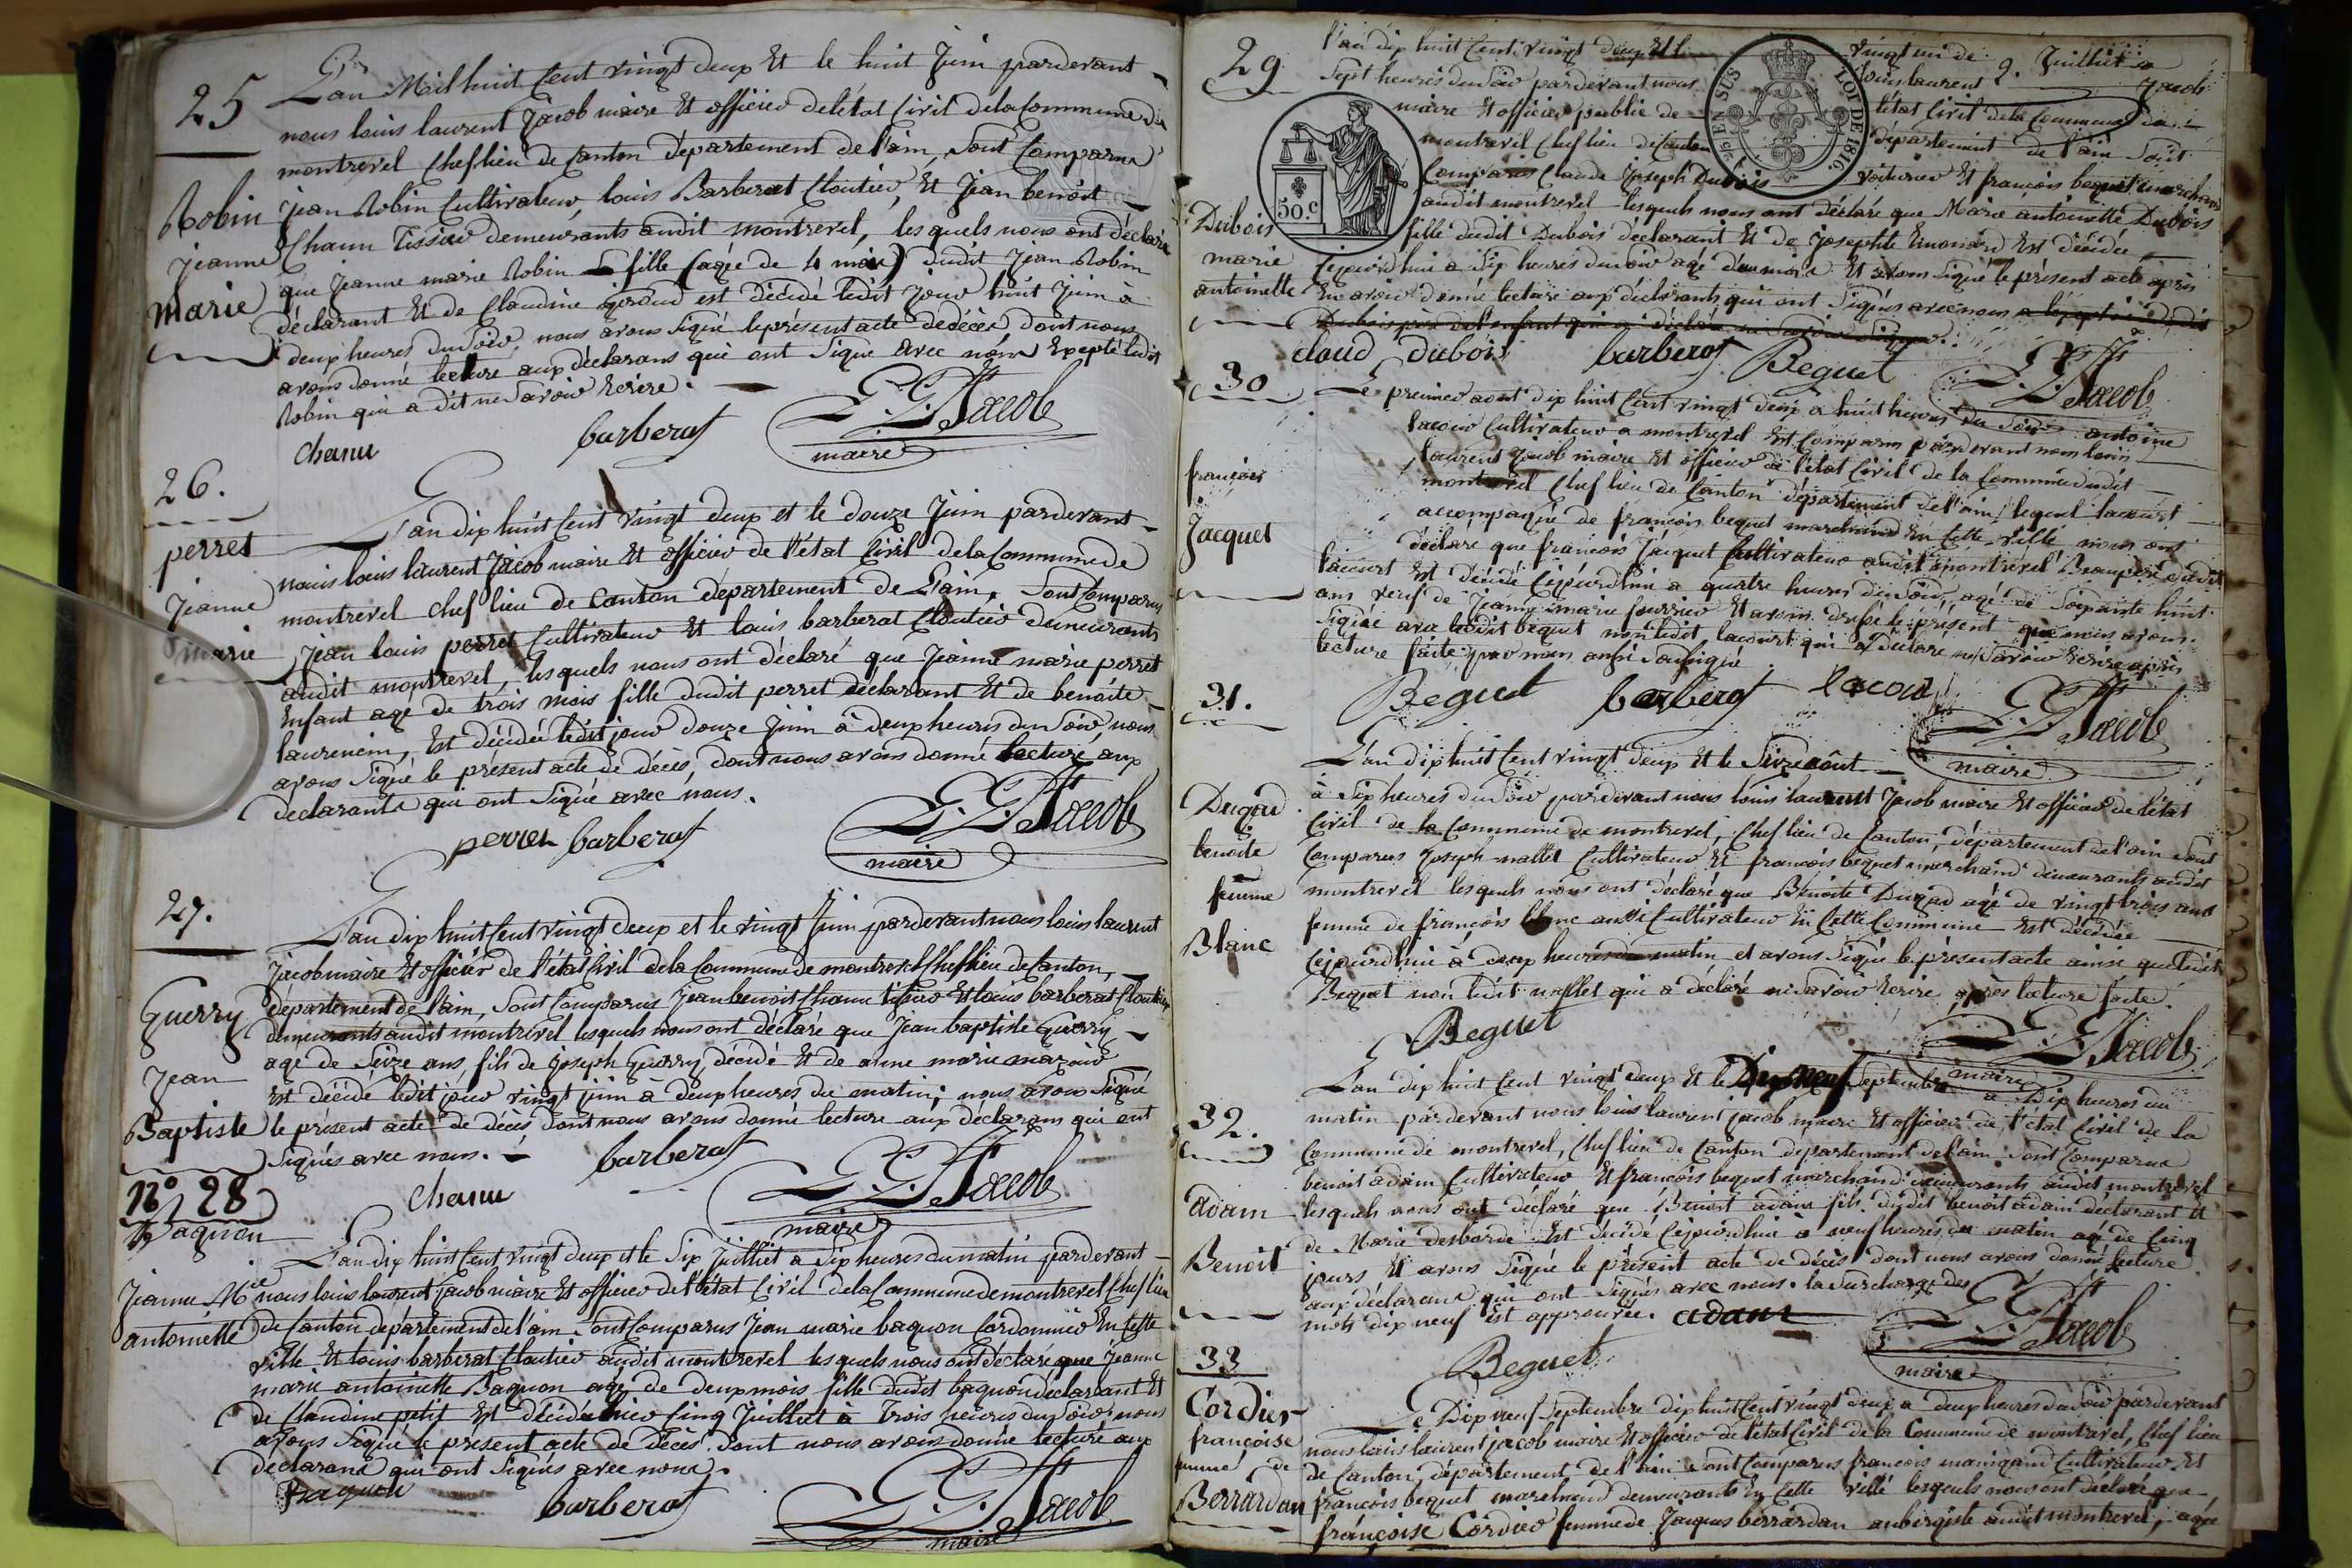 25
L'an Mail huit Cent vingt deux Et le huit Juin pardevant
nous louis laurent Jacob maire Et officier de létat Civil dela Commune du
montrevel Chef lieu de Canton département de l'ain, Sont Comparus
Robin
Jeanne
marie
jean Robin Cultivateur, louis Barberat Cloutier, Et Jean benoit
Chanu Tissier demeurants audit montrevel, lesquels nous ont déclaré
que Jeanne marie Robin fille (agée de 4 mois) dudit Jean Robin
déclarant Et de Claudine giraud est décédé ledit jour huit Juin à
deux heures du Soir, nous avons Signé le présent acte de décès dont nous
avons donné lecture aux déclarans qui ont Signé avec nous Excepté ledit
Robin qui a dit ne Savoir Ecrire.
Chanu barberat L. L. Jacob
maire
26.
perret
Jeanne
marie
L'an dix huit Cent vingt deux et le douze Juin pardevant
nous louis laurent Jacob maire Et officier de l'état Civil dela Commune de
montrevel chef lieu de Canton département de L'ain, Sont Comparus
Jean louis perret Cultivateur Et louis barberat Cloutier demeurants
audit montrevel, lesquels nous ont déclaré que Jeanne marie perret
Enfant agé de trois mois fille dudit perret déclarant Et de benoite
laurencin, Est décédée ledit jour douze Juin à deux heures du Soir, nous
avons Signé le présent acte de décès, dont nous avons donné lecture aux
déclarants qui ont Signé avec nous.
perret barberat L. L. Jacob
maire
27.
Guerry
Jean
Baptiste
L'an dix huit Cent vingt deux et le vingt Juin pardevant nous louis laurent
Jacob maire Et officier de l'état Civil dela Commune de montrevel Chef lieu de Canton,
département de l'ain, Sont Comparus Jean benoit Chanu tissier Et louis barberat Cloutier
demeurants audit montrevel lesquels nous ont déclaré que Jean baptiste Guerry
agé de Seize ans, fils de Joseph Guerry, décédé Et de anne marie
Est décédé ledit jour vingt juin à deux heures du matin; nous avons Signé
le présent acte de décès dont nous avons donné lecture aux déclarans qui ont
Signés avec nous.
Chanu barberat L. L. Jacob
maire
No 28
Baquon
Jeanne Mie
antoinette
L'an dix huit Cent vingt deux et le Six Juillet à Six heures du matin pardevant
nous louis laurent Jacob maire Et officier de l'état Civil dela Commune de montrevel Chef lieu
de Canton département de l'ain, Sont Comparus Jean marie baquon Cordonnier En Cette
ville Et louis barberat Cloutier audit montrevel lesquels nous ont déclaré que Jeanne
marie antoinette Baquon agé de deux mois fille dudit baquon déclarant Et
de Claudine petit Est décédée hier Cinq Juillet à Trois heures du Soir; nous
avons Signé le présent acte de décès dont nous avons donné lecture aux
déclarans qui ont Signés avec nous.
baquon barberat L. L. Jacob
maire
29
Dubois
marie
antoinette
l'an dix huit Cent vingt deux Et le vingt un de Juillet a
Sept heures du Soir pardevant nous louis laurent Jacob
maire Et officier public de létat Civil dela Commune de
montrevel Chef lieu de Canton département de l'ain Sont
Comparus Claude Joseph Dubois voiturier Et françois bequet marchand
audit montrevel lesquels nous ont déclaré que Marie antoinette Dubois
fille dudit Dubois déclarant Et de Josephte Est décédée
Cejourd'hui a Six heures du Soir agé d'un mois Et avons Signé le présent acte après
En avoir donné lecture aux déclarants qui ont Signés avec nous
claud dubois barberat Beguet L. L. Jacob
5 EN SUS
LOI DE 1816.
50.c
30
françois
Jacquet
Le premier aout dix huit Cent vingt deux a huit heures du Soir antoine
lacour Cultivateur a montrevel Est Comparus pardevant nous louis
laurent Jacob maire Et officier de l'état Civil de la Commune dudit
montrevel Chef lieu de Canton département de l'ain, lequel lacourt
accompagné de françois bequet marchand En Cette ville nous ont
déclaré que françois Jacquet Cultivateur audit montrevel Beaupere dudit
lacourt Est décédé Cejourd'hui a quatre heures du Soir, agé de Soixante huit
ans veuf de Jeanne marie fournier Et avons dressé le présent que nous avons
Signé avec ledit bequet non ledit lacourt qui a déclaré ne Savoir Ecrire après
lecture faite par nous aussi Soussigné
Beguet barberat lacour L. L. Jacob
maire
31.
Dugad
benoite
femme
Blanc
L'an dix huit Cent vingt deux Et le Seize août
à Six heures du Soir pardevant nous louis laurent Jacob maire Et officier de létat
Civil de la Commune de montrevel, Chef lieu de Canton, département de l'ain Sont
Comparus Joseph mallet Cultivateur Et françois bequet marchand demeurants audit
montrevel lesquels nous ont déclaré que Benoite Dugad agé de vingt trois ans
femme de françois blanc aussi Cultivateur En Cette Commune Est décédée
Cejourd'hui à deux heures du matin et avons Signé le présent acte ainsi que ledit
Bequet non ledit mallet qui a déclaré ne Savoir Ecrire après lecture faite.
Beguet L. L. Jacob
maire
32.
adam
Benoit
L'an dix huit Cent vingt deux Et le Dix neuf Septembre a Dix heures du
matin pardevant nous louis laurent jacob maire Et officier de l'état Civil de la
Commune de montrevel, Chef lieu de Canton département de l'ain Sont Comparus
benoit adam Cultivateur Et françois bequet marchand demeurants audit montrevel
lesquels nous ont déclaré que Benoit adam fils dudit benoit adam déclarant Et
de Marie desborde Est décédé Cejourdhui à neuf heures du matin agé de Cinq
jours Et avons Signé le présent acte de décès dont nous avons donné lecture
aux déclarans qui ont Signés avec nous. la Surcharge des
mots dix neuf Est approuvée. adam
Beguet L. L. Jacob
maire
33
Cordier
françoise
femme de
Berrardan
Le Dix neuf Septembre dix huit Cent vingt deux a deux heures du Soir pardevant
nous louis laurent jacob maire Et officier de létat Civil dela Commune de montrevel, Chef lieu
de Canton, département de l'ain Sont Comparus françois maingand Cultivateur Et
françois bequet marchand demeurants En Cette ville lesquels nous ont déclaré que
françoise Cordier femme de Jacques berrardan aubergiste audit montrevel, agée